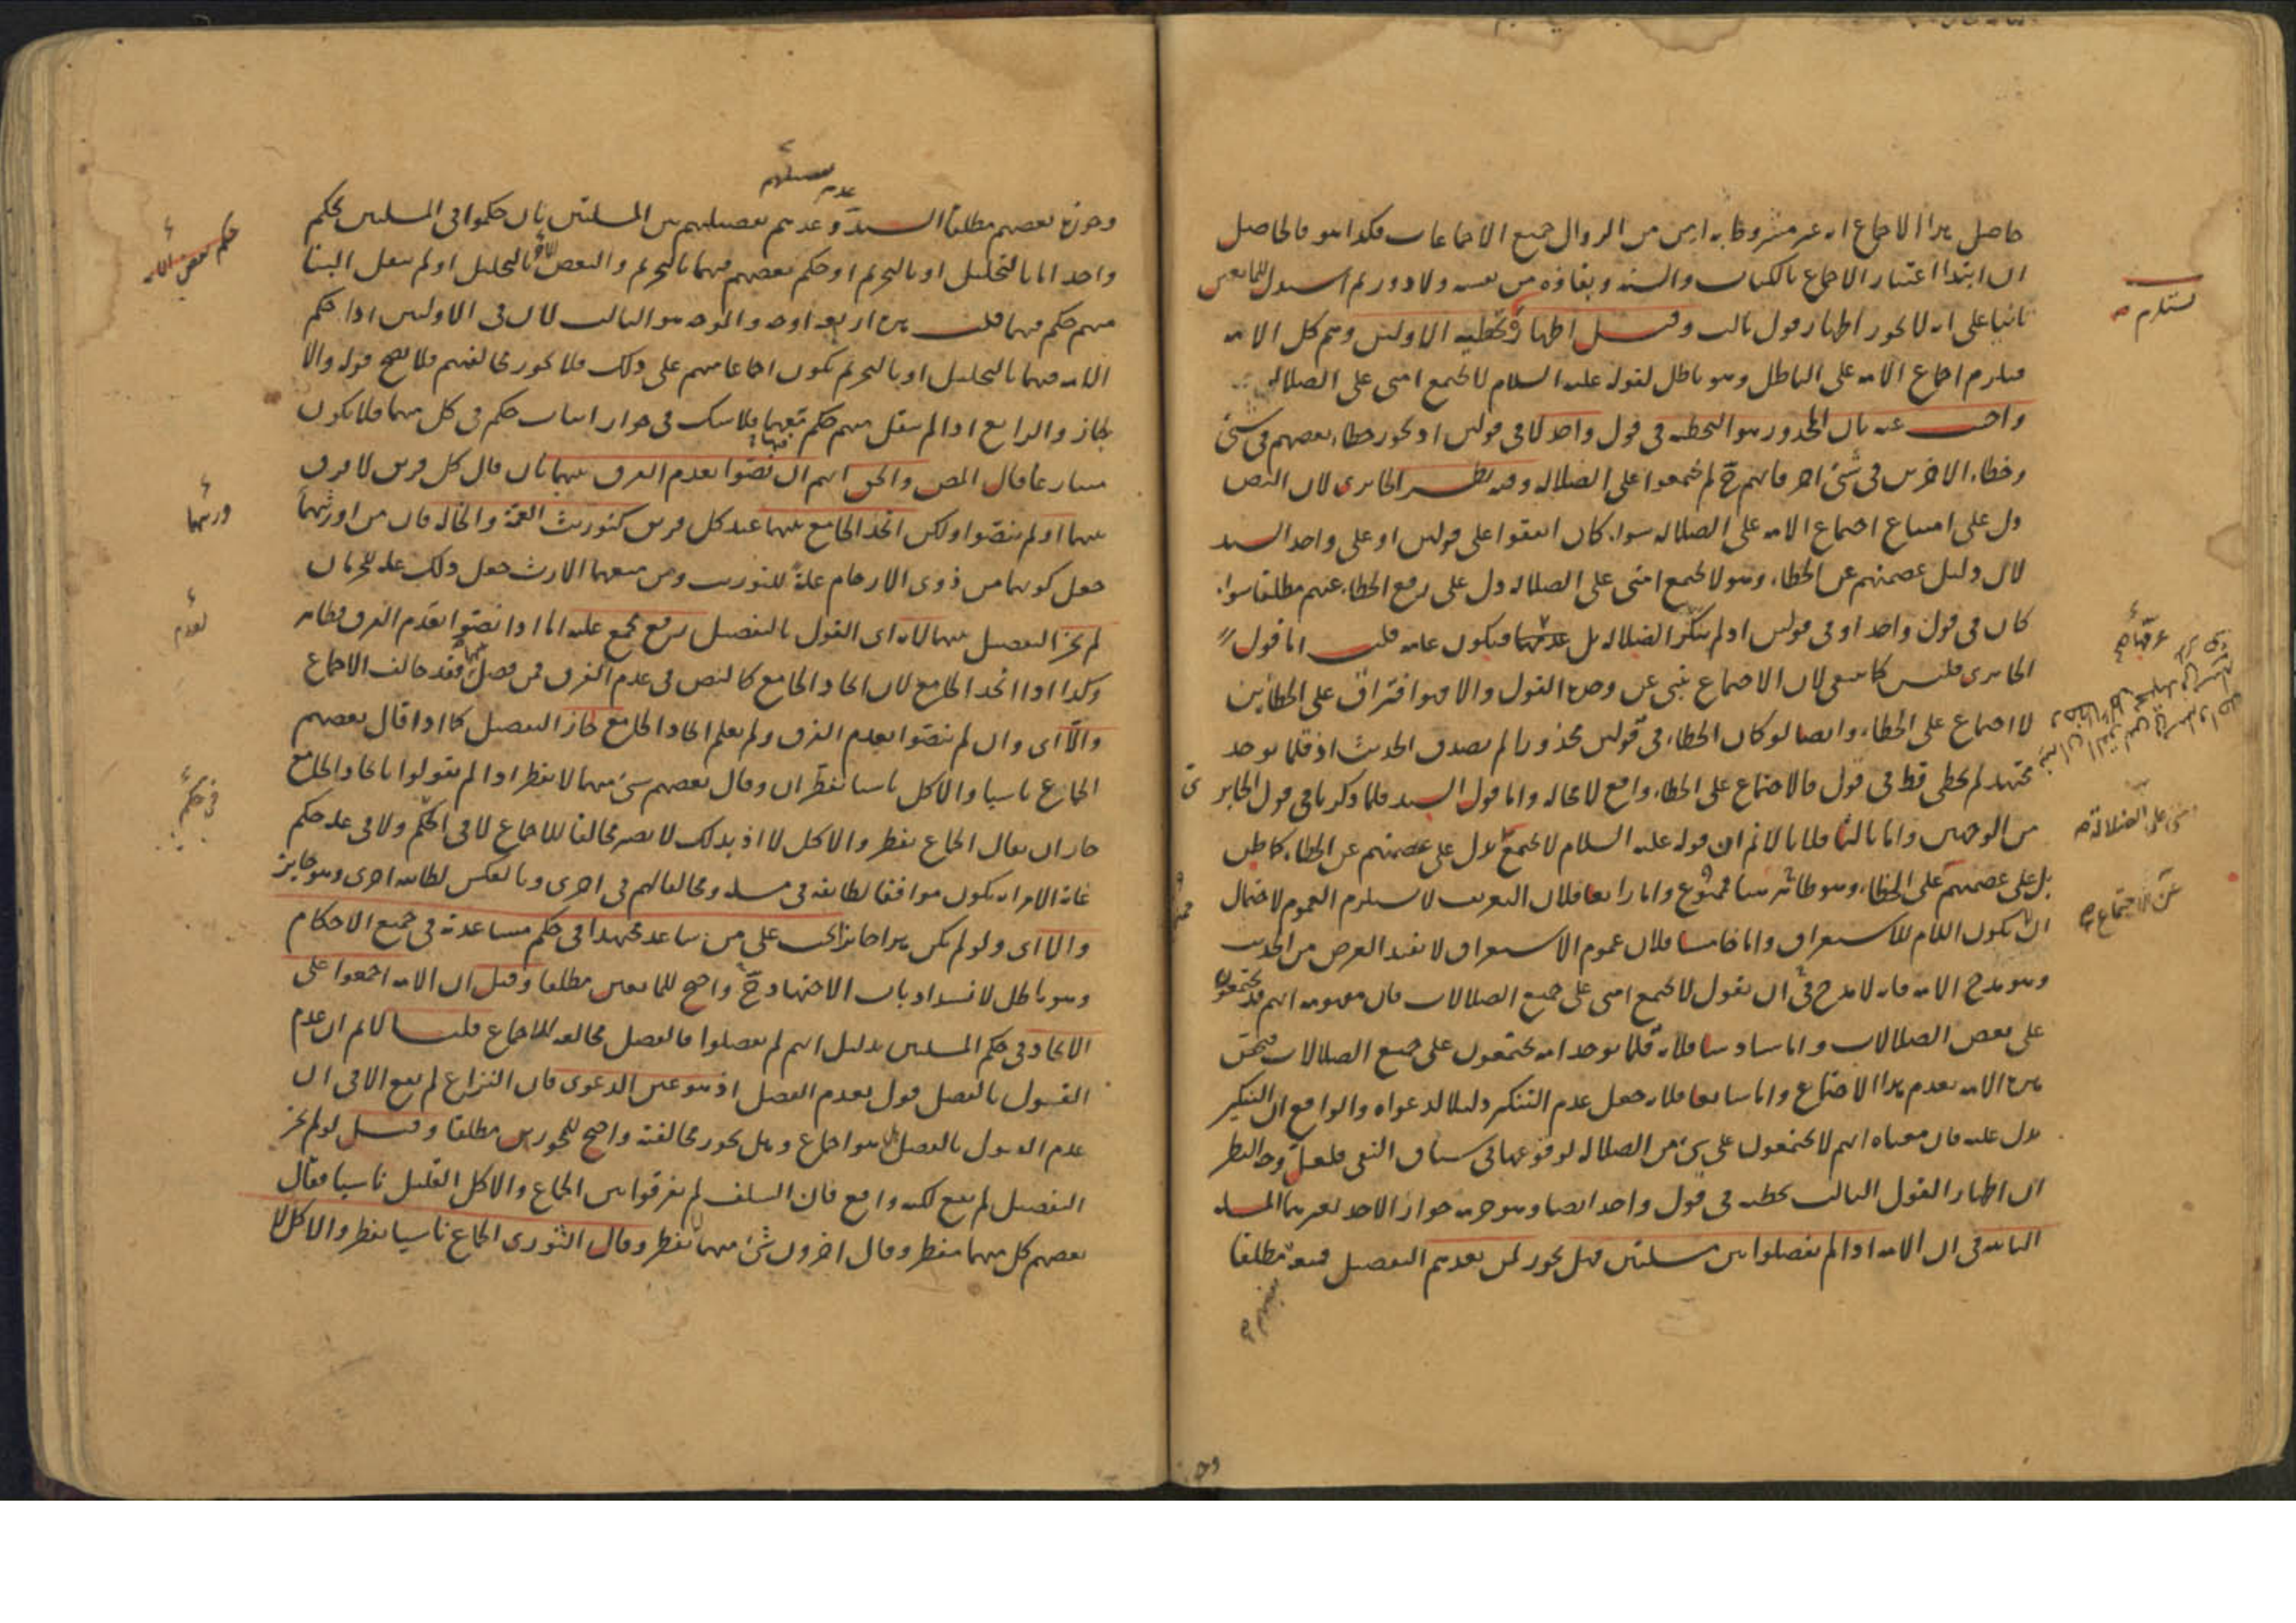 حاصل هذا الاجماع انه غير مشروط بل امن من الزوال جميع الاجماعات هكذا هو فالحاصل
ان ابتدا اعتبار الاجماع بالكتاب والسنة ونفاذه من نفسه ولا دور ثم استدل المانعين
ثانيا على انه لا يجوز اظهار قول ثالث وقيل اظهاره تخطية الاولين وهم كل الامة
فيلزم اجماع الامة على الباطل وهو باطل لقوله عليه السلام لا تجتمع امتى على الضلالة
واجيب عنه بان المحذور هو التخطية فى قول واحد لا فى قولين اذ يجوز خطاء بعضهم فى شئ
وخطاء الاخرين فى شئ اخر فانهم ح لم يجمعوا على الضلالة وفيه نظر الجابرى لان النص
دل على امتناع اجتماع الامة على الضلالة سواء كان اتفقوا على قولين او على واحد السيد
لان دليل عصمتهم عن الخطاء وهو لا تجتمع امتى على الضلالة دل على رفع الخطاء عنهم مطلقا سواء
كان فى قول واحد او فى قولين اذ لم ينكر الضلالة بل فيكون عامه قلت اما قول
الجابرى فليس كما ينبغى لان الاجتماع ينبى عن وحدة القول والا فهو افتراق على الخطائين
لا اجتماع على الخطاء وايضا لو كان الخطاء فى قولين محذورا لم يصدق الحديث اذ قلما يوجد
مجتهد لم يخطى قط فى قول فالاجتماع على الخطاء واقع لا محالة واما قول السيد فلما ذكرنا فى قول الجابرى
من الوجهين واما ثالثا فلانا لا نم ان قوله عليه السلام لا تجتمع يدل على عصمتهم عن الخطاء كما ظن
بل على عصمتهم على الخطاء وهو ممنوع واما رابعا فلان التعريف لا يستلزم العموم لاحتمال
ان لا يكون اللام للاستغراق واما خامسا فلان عموم الاستغراق لا يفيد الغرض من الحديث
وهو مدح الامة فانه لا مدح فى ان يقول لا تجتمع امتى على جميع الضلالات فان مفهومه انهم قد يجتمعون
على بعض الضلالات واما سادسا فلانه قلما يوجد امة يجتمعون على جميع الضلالات
مدح الامة بعدم هذا الاجتماع واما سابعا فلانه جعل عدم التنكير دليلا لدعواه والواقع ان التنكير
يدل عليه فان معناه انهم لا يجتمعون على شئ من الضلالة لوقوعها فى سياق النفى فلعل وجه النظر
ان اظهار القول الثالث تخطية فى قول واحد ايضا وهو حرمة جواز الاخذ بغيرهما المسئلة
الثانية فى ان الامة اذا لم يفصلوا بين مسئلتين فهل يجوز لمن بعدهم التفصيل منعه مطلقا
يستلزم
امتى على الضلالة
عن الاجتماع
وجوزه بعضهم مطلقا السيد وعدم تفصيلهم بين المسئلتين بان حكموا فى المسئلتين بحكم
واحد اما بالتحليل او بالتحريم او حكم بعضهم فيهما بالتحريم والبعض بالتحليل او لم ينقل الينا
منهم حكم فيهما قلت هذه اربعة اوجه والوجه هو الثالث لان فى الاولين اذا حكم
الامة فيهما بالتحليل او بالتحريم يكون اجماعا منهم على ذلك فلا يجوز مخالفتهم فلا يصح قوله والا
لجاز والرابع اذا لم ينقل منهم حكم فلا شك فى جواز اثبات حكم فى كل منهما فلا يكون
متنازعا قال المص والحق انهم ان نصوا بعدم الفرق بينهما بان قال كل فريق لا فرق
بينهما او لم ينصوا ولكن اتحد الجامع بينهما عند كل فريق كتوريث العمة والخالة فان من اورثهما
جعل كونهما من ذوى الارحام علة للتوريث ومن منعهما الارث جعل ذلك علة للحرمان
لم يجز التفصيل بينهما لانه اى القول بالتفصيل رفع مجمع عليه اما اذا نصوا بعدم الفرق فظاهر
وكذا اذا اتحد الجامع لان اتحاد الجامع كالنص فى عدم الفرق فمن فصل فقد خالف الاجماع
والا اى وان لم ينصوا بعدم الفرق ولم يعلم اتحاد الجامع جاز التفصيل كما اذا قال بعضهم
الجماع ناسيا والاكل ناسيا يفطران وقال بعضهم شئ منهما لا يفطر اذا لم يقولوا باتحاد الجامع
جاز ان يقال الجماع يفطر والاكل لا اذ بذلك لا يصير مخالفا للاجماع لا فى الحكم ولا فى علة حكم
غاية الامر انه يكون موافقا لطايفة فى مسئلة ومخالفا لهم فى اخرى وبالعكس لطايفة اخرى وهو جايز
والا اى ولو لم يكن هذا جايزا يجب على من ساعد مجتهدا فى حكم مساعدته فى جميع الاحكام
وهو باطل لانسداد باب الاجتهاد ح واحتج للمانعين مطلقا وقيل ان الامة اجمعوا على
الاتحاد فى حكم المسئلتين بدليل انهم لم يفصلوا فالفصل مخالفة للاجماع قلنا لا نم ان عدم
القول بالفصل قول بعدم الفصل اذ هو عين الدعوى فان النزاع لم يقع الا فى ان
عدم القول بالفصل هل هو اجماع وهل يجوز مخالفته واحتج للمجوزين مطلقا وقيل لو لم يجز
التفصيل لم يقع لكنه واقع فان السلف لم يفرقوا بين الجماع والاكل القليل ناسيا فقال
بعضهم كل منهما مفطر وقال اخرون شئ منهما لا يفطر وقال الثورى الجماع ناسيا يفطر والاكل لا
ورثهما
بعدم
فى حكم